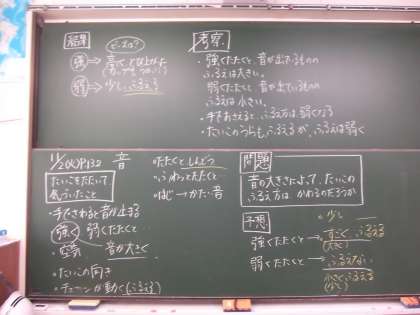 結果
ビーズは?
強 ⇒ 高くとび上がった
弱 ⇒ 少しふるえる
考察
・強くたたくと、音が出ているものの
ふるえは大きい。
弱くたたくと 音が出ているものの
ふるえは小さい。
・手でおさえると、ふるえ方は弱くなる
・たいこのうらも、ふるえるが、ふるえは弱く
11/20(火)P.132 音
たいこをたたいて
気づいたこと
・手でさわると音が止まる
強く 弱くたたくと
音が大きく
・たいこの向き
・チェーンが動く(ふるえる)
・たたくと しんどう
・ふわっとたたくと
・はじ→かたい音
問題
音の大きさによって、たいこの
ふるえ方は かわるのだろうか
予想
・少し
強くたたくと ⇒ すごくふるえる
(大きく)
弱くたたくと ⇒ ふるえない
小さくふるえる
(少し)